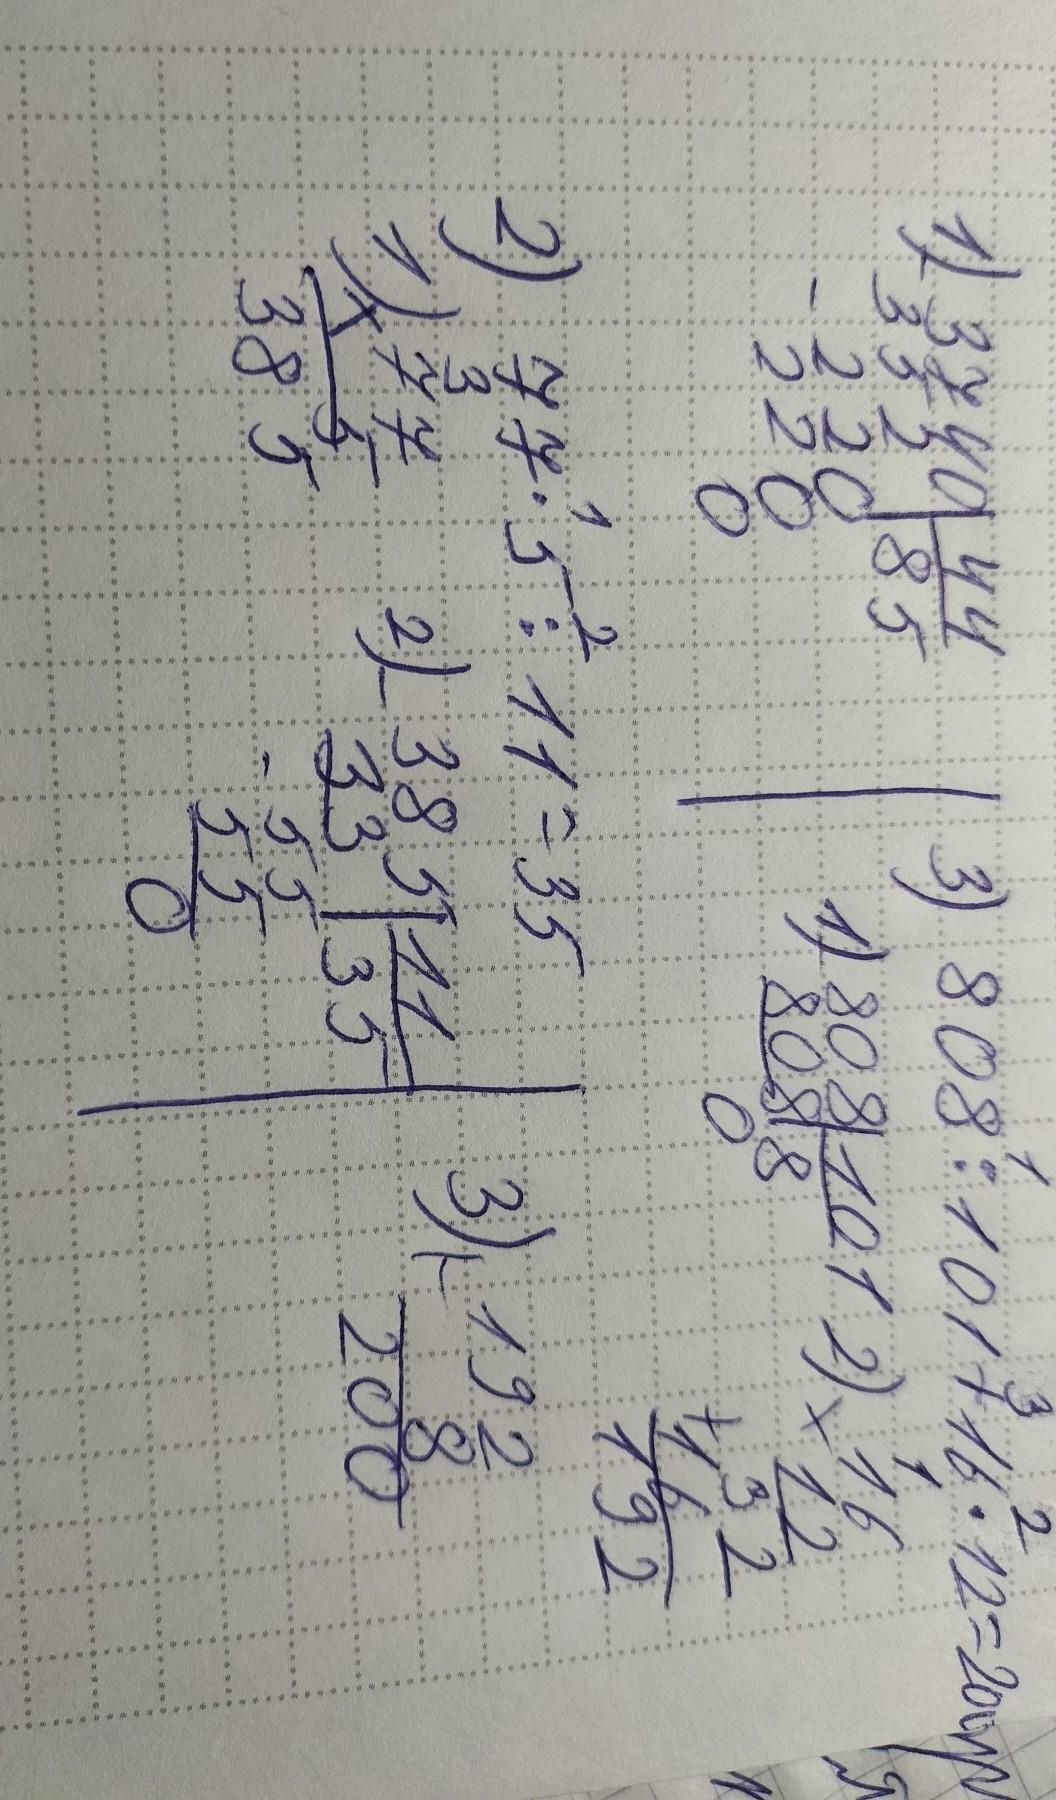 1) 3740 | 44
352 | 85
- 220
220
0
2) 77 · 5 : 11 = 35
1 2
1) 3
× 77
5
385
2) - 385 | 11
33 | 35
- 55
55
0
3) 808 : 101 + 16 · 12 = 200
1 3 2
1) 808 | 101
808 | 8
0
2) 1
× 16
12
+ 32
16
192
3) + 192
8
200